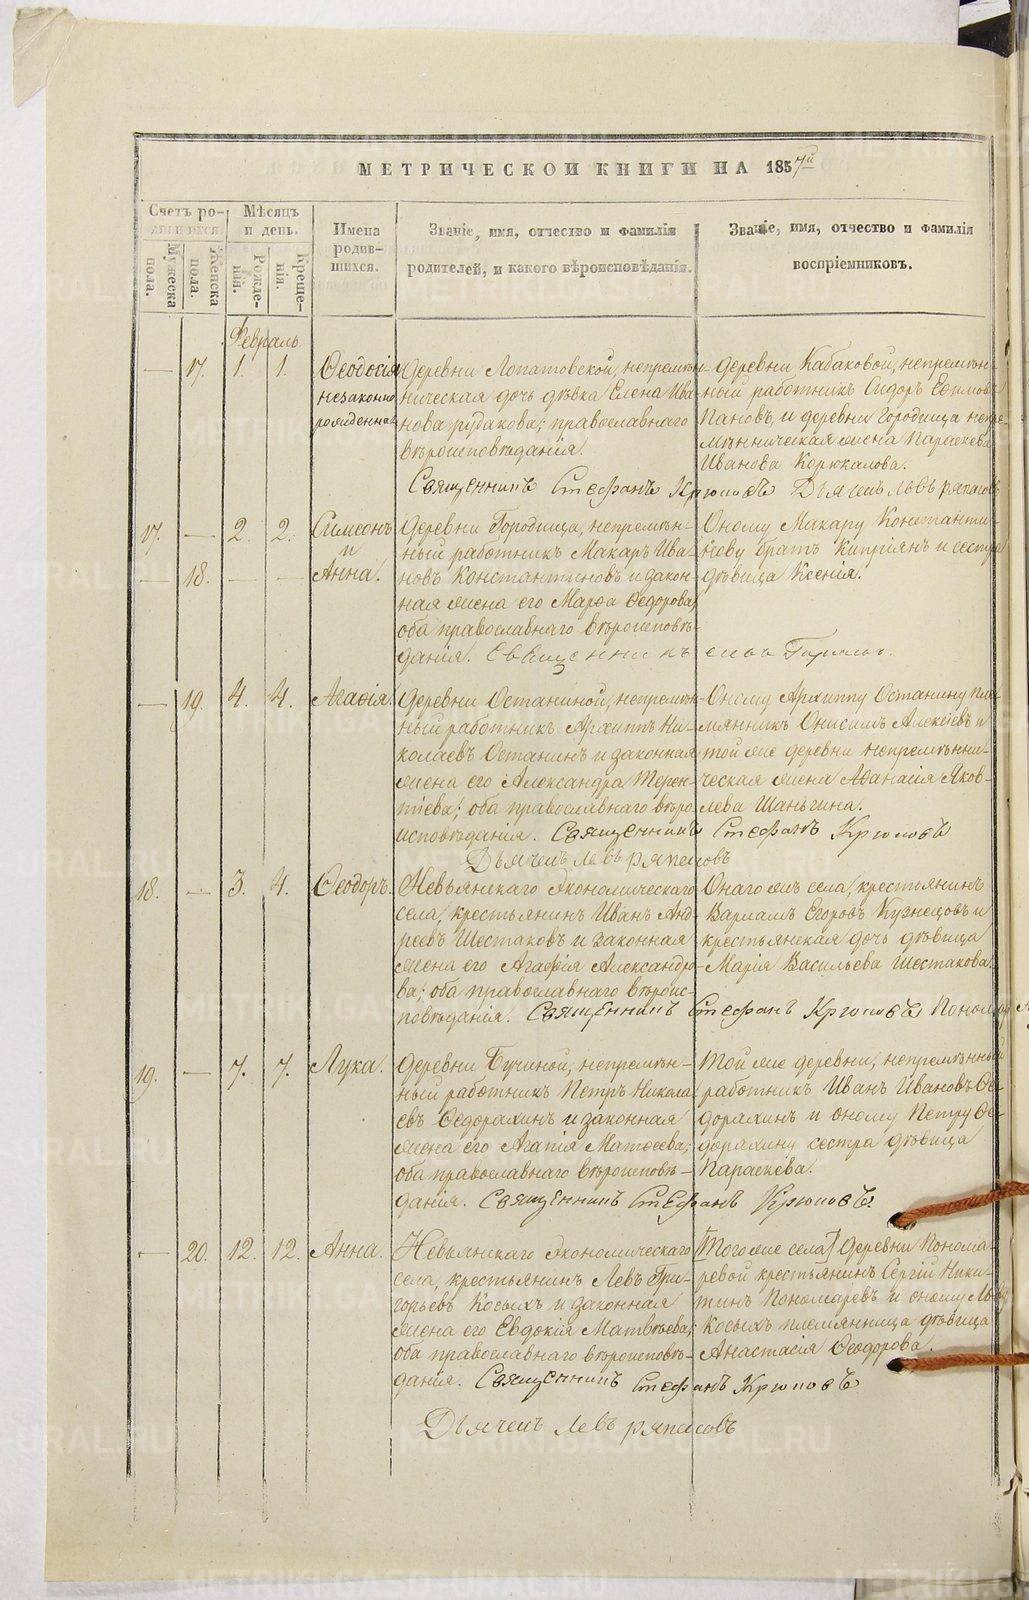 МЕТРИЧЕСКОЙ КНИГИ НА 1857й
Счетъ ро-
дившихся.
Мужеска
пола.
Женска
пола.
Мѣсяцъ
и день.
Рожде-
нія.
Креще-
нія.
Имена
родив-
шихся.
Званіе, имя, отчество и фамилія
родителей, и какого вѣроисповѣданія.
Званіе, имя, отчество и фамилія
воспріемниковъ.
Февраль
— 17. 1. 1.
Ѳеодосія
незаконно
рожденная
Деревни Лопатовской, непремѣн-
ническая дочь дѣвка Елена Ива-
нова Рудакова; православнаго
вѣроисповѣданія.
Деревни Кабаковой, непремѣн-
ный работникъ Сидоръ Ефимовъ
Пановъ, и деревни Городища непре-
мѣнническая жена Параскева
Иванова Корюкалова.
Священникъ Стефанъ Крюковъ Дьячекъ Левъ
17. — 2. 2.
— 18. — —
Симеонъ
и
Анна.
Деревни Городища, непремѣн-
ный работникъ Макаръ Ива-
новъ Константиновъ и закон-
ная жена его Марѳа Ѳедорова,
оба православнаго вѣроисповѣ-
данія.
Оному Макару Константи-
нову братъ Кипріянъ и сестра
дѣвица Ксенія.
— 19. 4. 4.
Агаѳія.
Деревни Останиной, непремѣн-
ный работникъ Архиппъ Ни-
колаевъ Останинъ и законная
жена его Александра Терен-
тіева; оба православнаго вѣро-
исповѣданія.
Оному Архиппу Останину пле-
мянникъ Онисимъ Алексѣевъ и
той же деревни непремѣнни-
ческая жена Аѳанасія Яков-
лева Шаньгина.
Священникъ Стефанъ Крюковъ
Дьячекъ Левъ
18. — 3. 4.
Ѳеодоръ.
Невьянскаго Экономическаго
села, крестьянинъ Иванъ Анд-
реевъ Шестаковъ и законная
жена его Агафія Александро-
ва; оба православнаго вѣроис-
повѣданія.
Онаго жъ села, крестьянинъ
Варлаамъ Егоровъ Кузнецовъ и
крестьянская дочь дѣвица
Марія Васильева Шестакова.
Священникъ Стефанъ Крюковъ
19. — 7. 7.
Лука.
Деревни Бучиной, непремѣн-
ный работникъ Петръ Никола-
евъ Ѳедорахинъ и законная
жена его Агапія Матѳеева;
оба православнаго вѣроисповѣ-
данія.
Той же деревни, непремѣнный
работникъ Иванъ Ивановъ Ѳе-
дорахинъ и оному Петру Ѳе-
дорахину сестра дѣвица
Параскева.
Священникъ Стефанъ Крюковъ.
— 20. 12. 12.
Анна.
Невьянскаго Экономическаго
села, крестьянинъ Левъ Гри-
горьевъ Косыхъ и законная
жена его Евдокія Матвѣева;
оба православнаго вѣроисповѣ-
данія.
[Того же села] Деревни Понома-
ревой крестьянинъ Сергій Ники-
тинъ Пономаревъ и оному Льву
Косыхъ племянница дѣвица
Анастасія Ѳеодорова.
Священникъ Стефанъ Крюковъ
Дьячекъ Левъ
METRIKI.GASO-URAL.RU